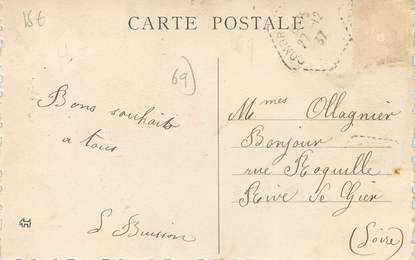 15€
CARTE POSTALE
27-12
37
69)
Bons souhaits
a tous
L Buisson
Mmes Ollagnier
Bonjour
rue Roquille
Rive de Gier
(Loire)